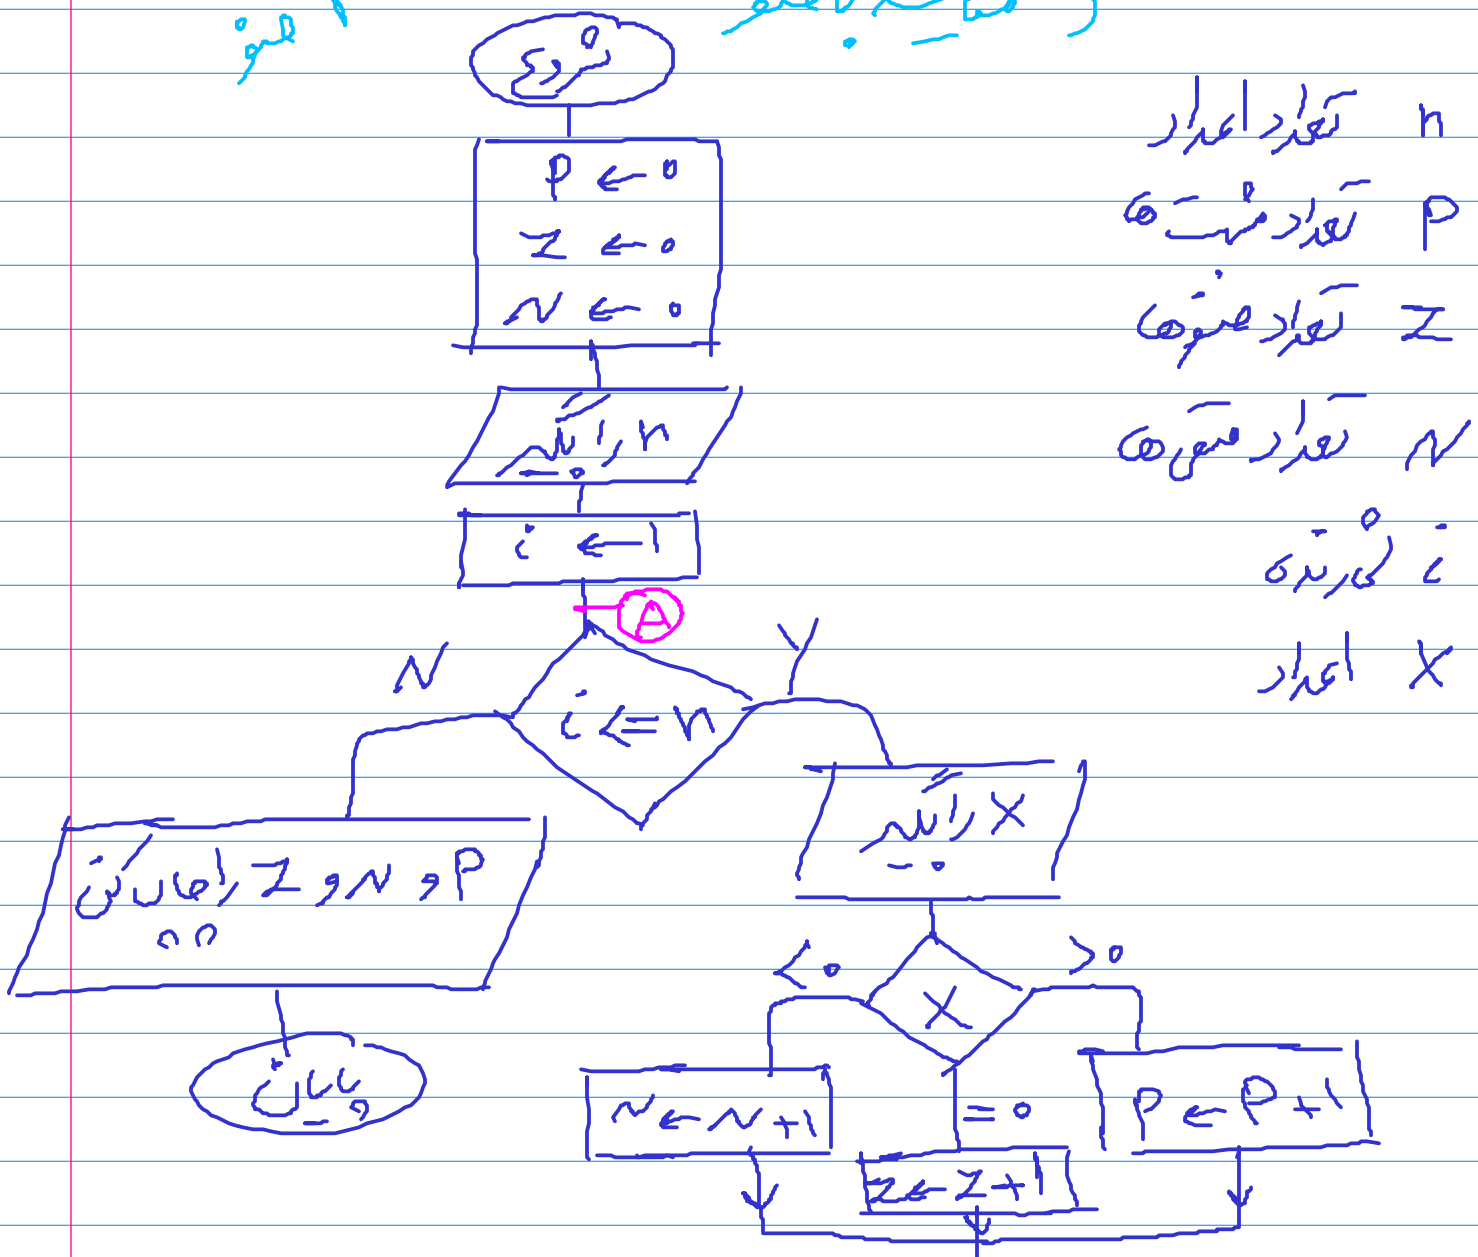 شروع
P ← 0
Z ← 0
N ← 0
n را بگیر
i ← 1
A
i <= n
N
Y
X را بگیر
P و N و Z را نمایش بده
پایان
X
< 0
> 0
= 0
N ← N + 1
Z ← Z + 1
P ← P + 1
n تعداد اعداد
P تعداد مثبت ها
Z تعداد صفرها
N تعداد منفی ها
i شمارنده
X اعداد